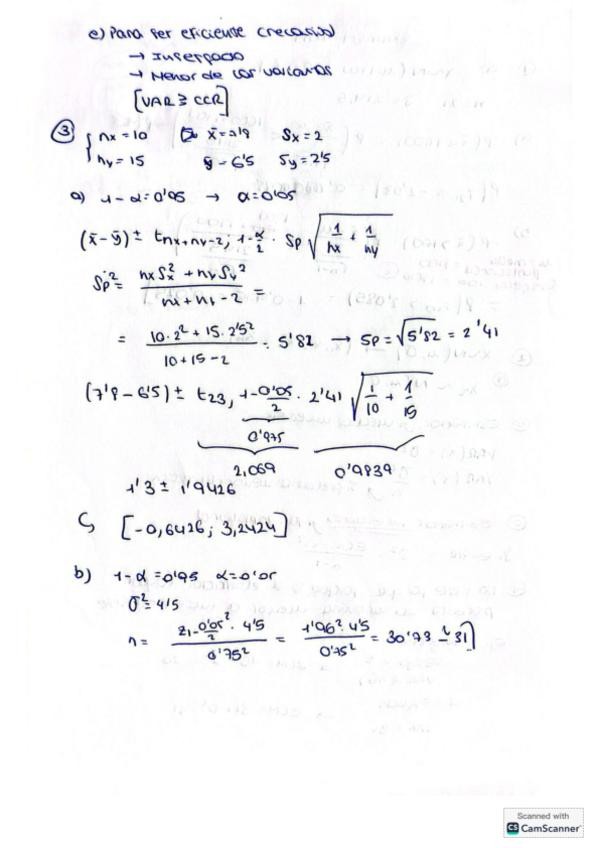 e) Para ser eficiente
→ Insesgado
→ Menor de las varianzas
[VAR ≥ CCR]
③ { nx = 10 x̄ = Sx = 2
ny = 15 ȳ = 6'5 Sy = 2'5
a) 1 - α = 0'95 → α = 0'05
(x̄ - ȳ) ± t nx+ny-2; 1-α/2 · Sp √(1/nx + 1/ny)
Sp² = (nx Sx² + ny Sy²) / (nx + ny - 2) =
= (10·2² + 15·2'5²) / (10+15-2) = 5'82 → Sp = √5'82 = 2'41
(7'8 - 6'5) ± t23, 1-0'05/2 · 2'41 √(1/10 + 1/15)
0'975
2,069 0'9839
1'3 ± 1'9426
[-0,6426; 3,2424]
b) 1 - α = 0'95 α = 0'05
σ² = 4'5
n = (z1-0'05/2² · 4'5) / 0'75² = (1'96² · 4'5) / 0'75² = 30'73 ≃ 31
Scanned with
CS CamScanner